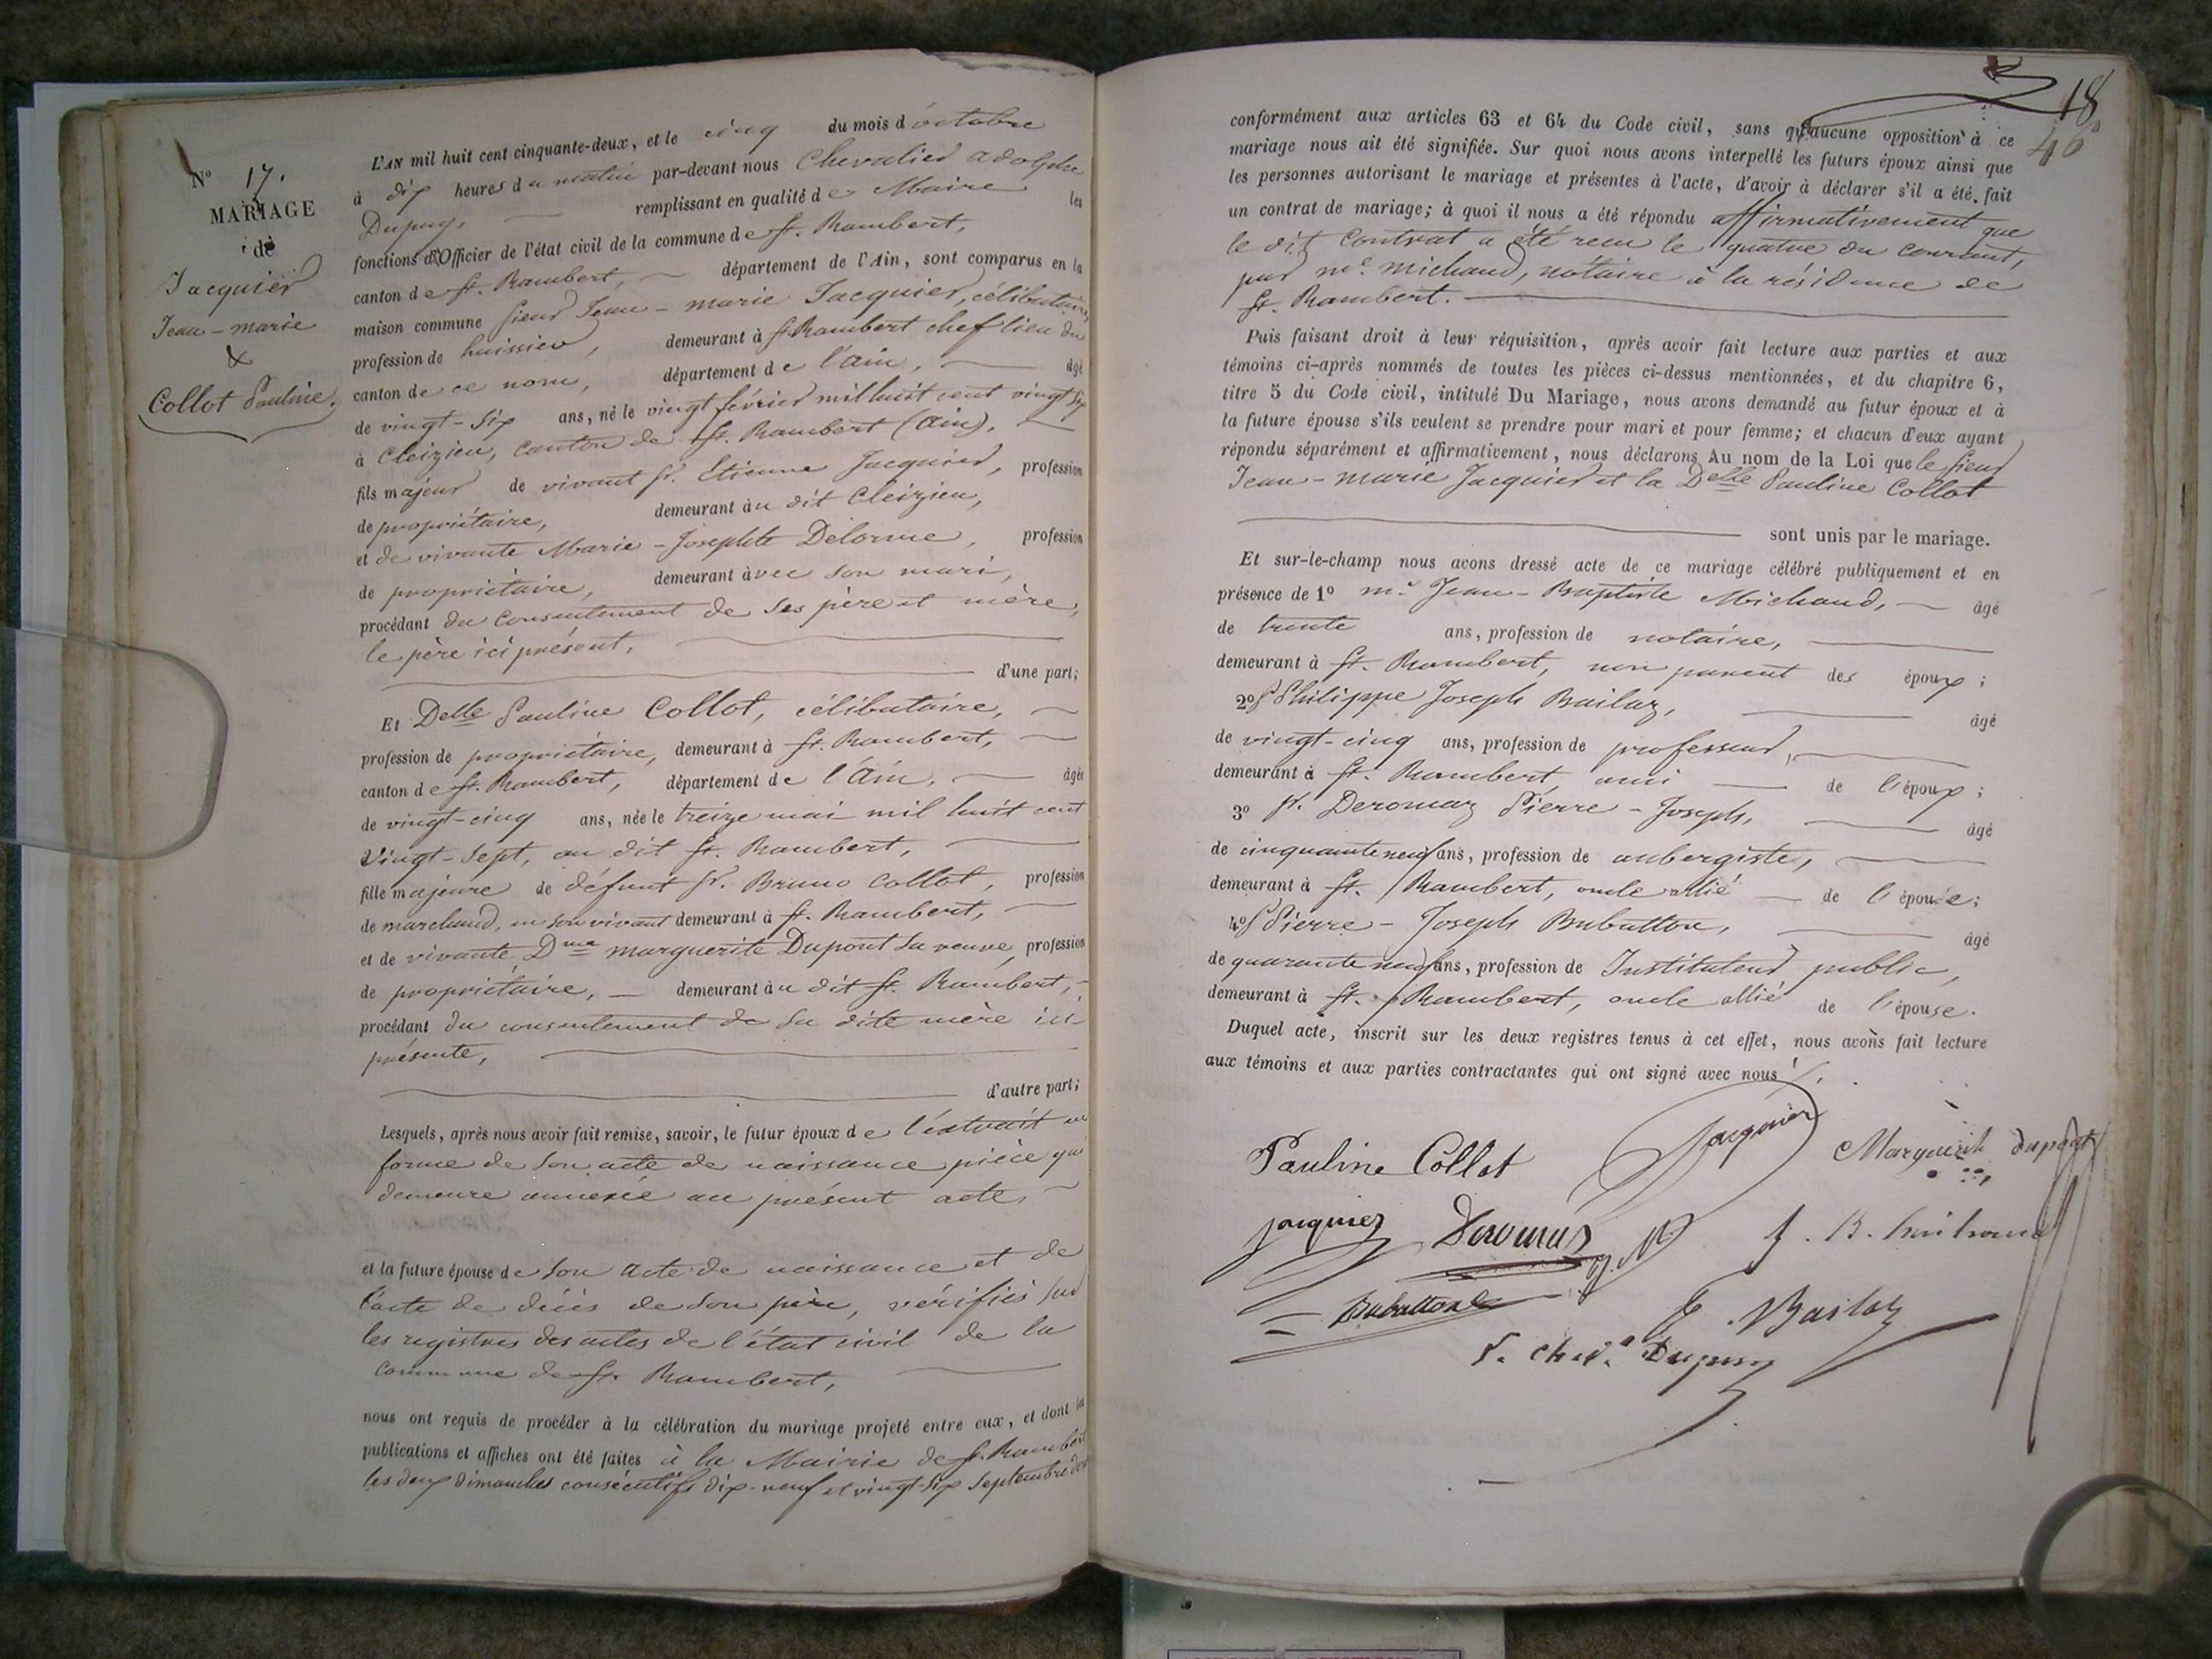 N° 17.
MARIAGE
de
Jacquier
Jean-marie
&
Collot Pauline.
L'AN mil huit cent cinquante-deux, et le cinq du mois d'octobre
à dix heures du matin par-devant nous Chevalier adolphe
Dupuy, remplissant en qualité de Maire les
fonctions d'Officier de l'état civil de la commune de St. Rambert,
canton de St. Rambert, département de l'Ain, sont comparus en la
maison commune sieur Jean-marie Jacquier, célibataire,
profession de huissier, demeurant à St. Rambert chef lieu du
canton de ce nom, département de l'ain, âgé
de vingt-six ans, né le vingt février mil huit cent vingt six
à Cleizieu, canton de St. Rambert (Ain),
fils majeur de vivant sr. Etienne Jacquier, profession
de propriétaire, demeurant au dit Cleizieu,
et de vivante Marie-Josephte Delorme, profession
de propriétaire, demeurant avec son mari,
procédant du consentement de ses père et mère,
le père ici présent,
d'une part;
Et Delle Pauline Collot, célibataire,
profession de propriétaire, demeurant à St. Rambert,
canton de St. Rambert, département de l'Ain, âgée
de vingt-cinq ans, née le treize mai mil huit cent
vingt-sept, au dit St. Rambert,
fille majeure de défunt sr. Bruno Collot, profession
de marchand, en son vivant demeurant à St. Rambert,
et de vivante Dme marguerite Dupont sa veuve, profession
de propriétaire, demeurant au dit St. Rambert,
procédant du consentement de sa dite mère ici
présente,
d'autre part;
Lesquels, après nous avoir fait remise, savoir, le futur époux de l'extrait en
forme de son acte de naissance pièce qui
demeure annexée au présent acte,
et la future épouse de son acte de naissance et de
l'acte de décès de son père, vérifiés sur
les registres des actes de l'état civil de la
commune de St. Rambert,
nous ont requis de procéder à la célébration du mariage projeté entre eux, et dont les
publications et affiches ont été faites à la Mairie de St. Rambert
les deux dimanches consécutifs dix-neuf et vingt-six septembre
18
46
conformément aux articles 63 et 64 du Code civil, sans qu'aucune opposition à ce
mariage nous ait été signifiée. Sur quoi nous avons interpellé les futurs époux ainsi que
les personnes autorisant le mariage et présentes à l'acte, d'avoir à déclarer s'il a été fait
un contrat de mariage; à quoi il nous a été répondu affirmativement que
le dit contrat a été recu le quatre du courant,
par me. michaud, notaire à la résidence de
St. Rambert.
Puis faisant droit à leur réquisition, après avoir fait lecture aux parties et aux
témoins ci-après nommés de toutes les pièces ci-dessus mentionnées, et du chapitre 6,
titre 5 du Code civil, intitulé Du Mariage, nous avons demandé au futur époux et à
la future épouse s'ils veulent se prendre pour mari et pour femme; et chacun d'eux ayant
répondu séparément et affirmativement, nous déclarons Au nom de la Loi que le sieur
Jean-marie Jacquier et la Delle Pauline Collot
sont unis par le mariage.
Et sur-le-champ nous avons dressé acte de ce mariage célébré publiquement et en
présence de 1° me. Jean-Baptiste Michaud, âgé
de trente ans, profession de notaire,
demeurant à St. Rambert, non parent des époux;
2° S Philippe Joseph Bailaz, âgé
de vingt-cinq ans, profession de professeur,
demeurant à St. Rambert, ami de l'époux;
3° sr. Deromaz Pierre-Joseph, âgé
de cinquante neuf ans, profession de aubergiste,
demeurant à St. Rambert, oncle allié de l'épouse;
4° S Pierre-Joseph Brubatton, âgé
de quarante neuf ans, profession de Instituteur public,
demeurant à St. Rambert, oncle allié de l'épouse.
Duquel acte, inscrit sur les deux registres tenus à cet effet, nous avons fait lecture
aux témoins et aux parties contractantes qui ont signé avec nous.
Pauline Collot Jacquier Marguerite dupont
jacquier Deromaz J. B. Michaud
Brubatton P. Bailaz
A. Chev. Dupuy